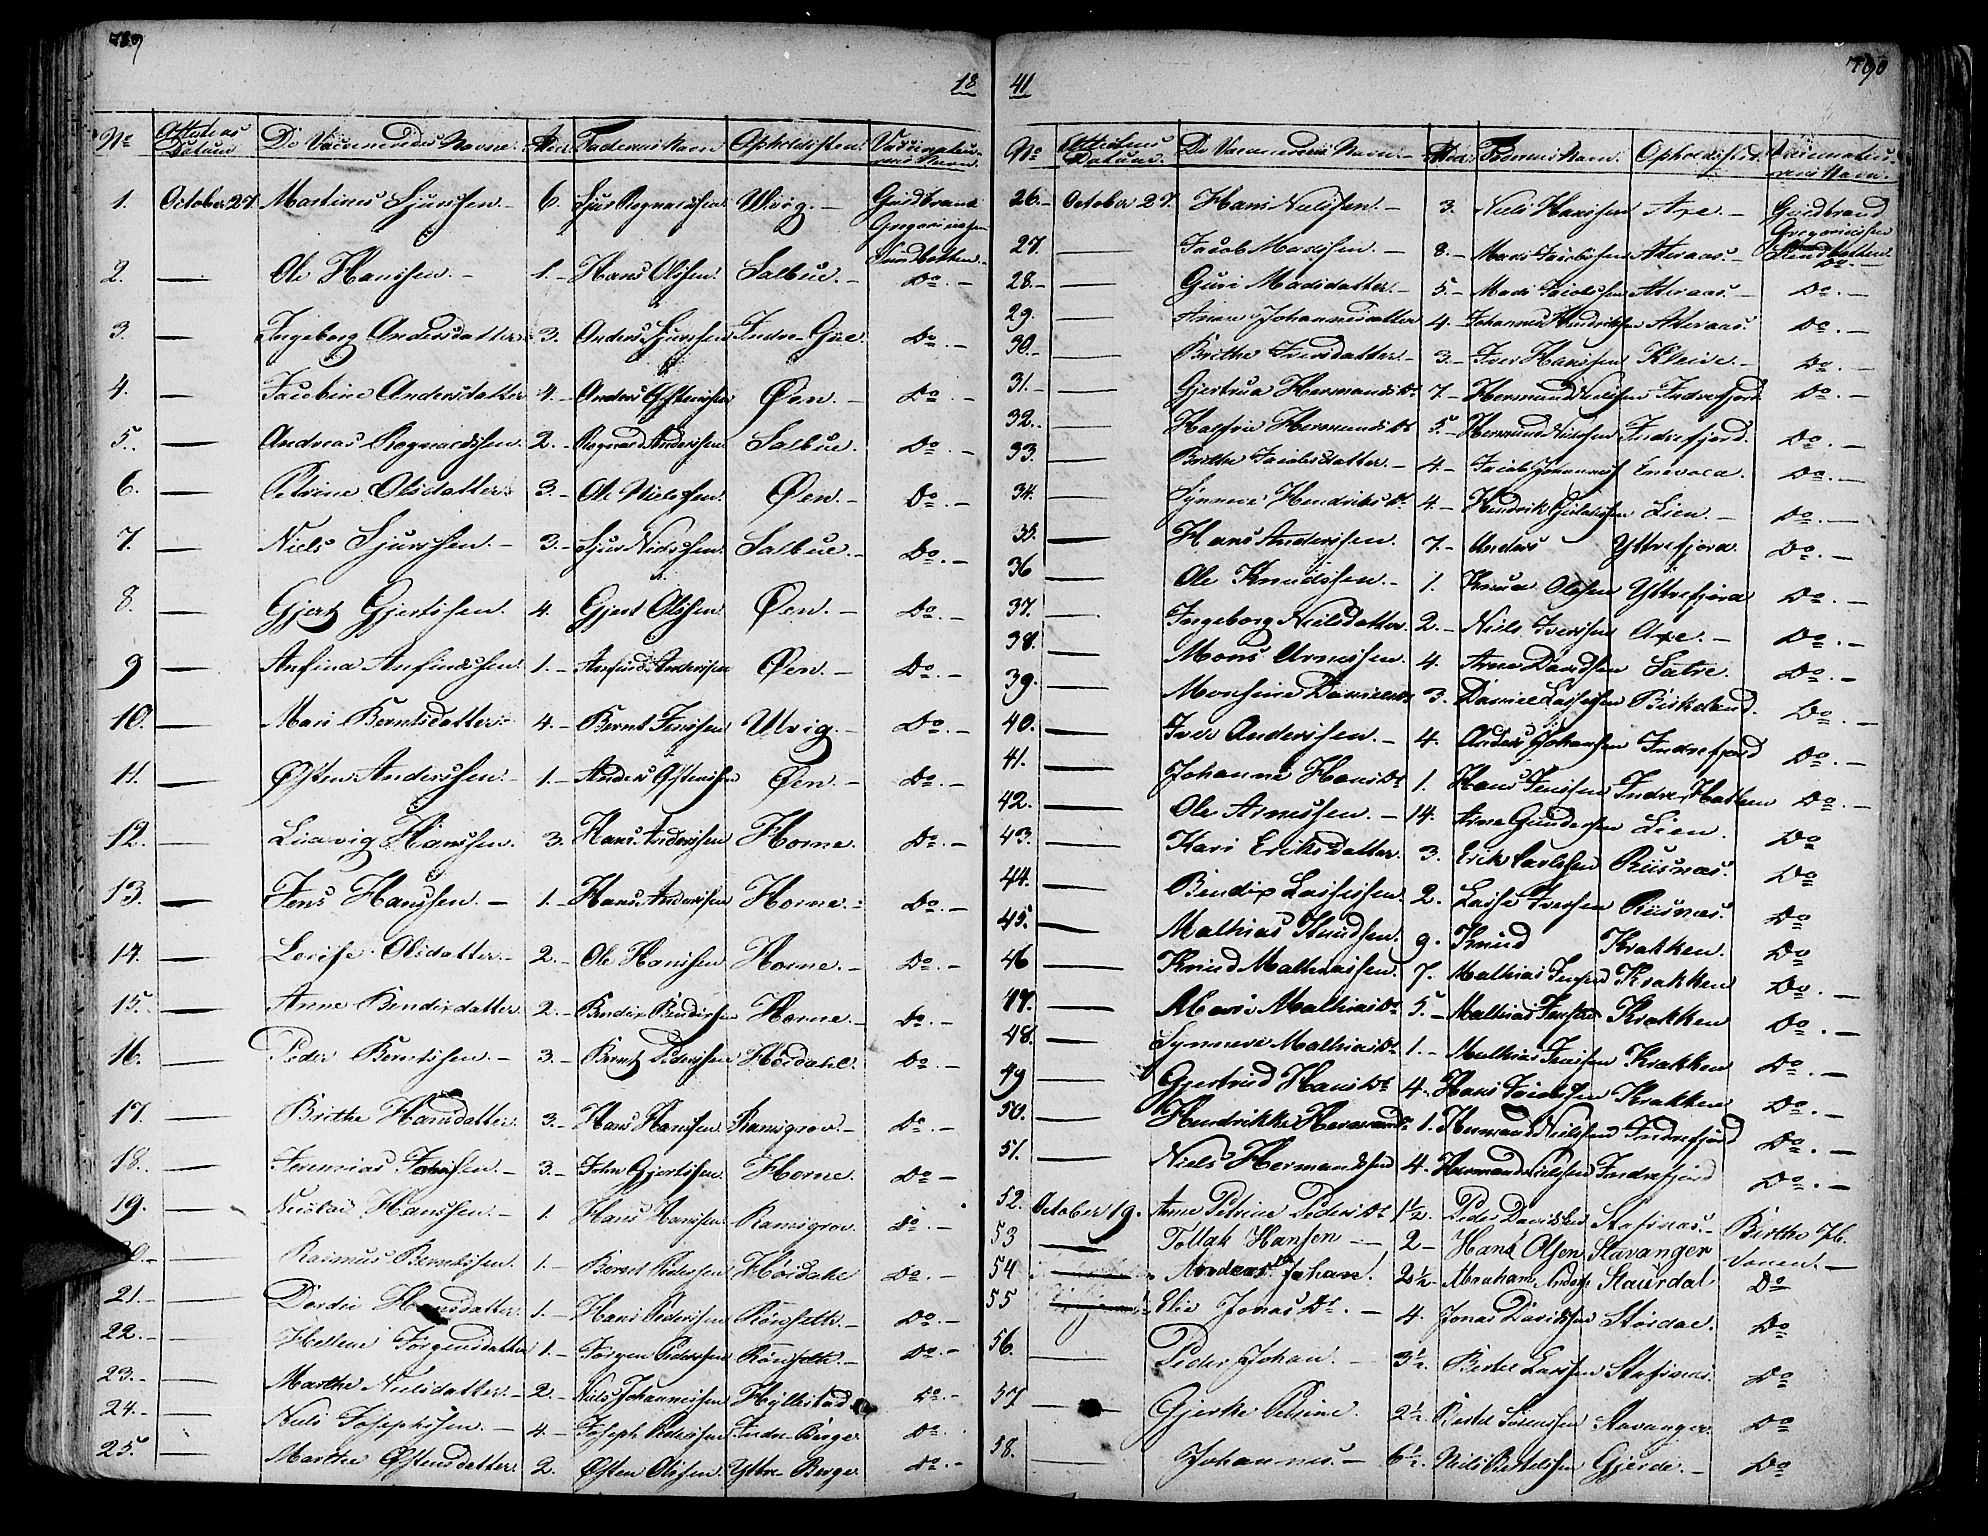 789
18
No Attestens Datum De Vaccineredes Navne. Alder. Faderens Navn Opholdssted. Vaccinateurens Navn.
1. October 27. Martinus Sjurssen. 6. Sjur Rognaldssen Utvig. Guldbrand Gregoriussen Sundbotten.
2. — Ole Hanssen. 1. Hans Olssen. Salbue. Do.
3. — Ingeborg Andersdatter. 3. Anders Sjurssen Indre Do.
4. — Jacobine Andersdatter 4. Anders Øftenssen Øen. Do.
5. — Andreas Rognaldssen. 2. Rognald Anderssen Salbue. Do.
6. — Petrine Olsdatter. 3. Ole Nielssen. Øen. Do.
7. — Niels Sjurssen. 3. Sjur Nielssen. Salbue. Do.
8. — Gjert Gjertssen. 4. Gjert Olssen. Øen. Do.
9 — Anfind Anfindssen. 1. Anfind Anderssen Øen. Do.
10. — Mari Berntsdatter. 4. Bernt Jenssen Utvig. Do.
11. — Øften Anderssen. 1. Anders Øftenssen Øen. Do.
12. — Ludvig Hanssen. 3. Hans Anderssen Horne. Do.
13. — Jens Hanssen. 1. Hans Anderssen Horne. Do.
14. — Lovise Olsdatter. 2. Ole Hanssen Horne. Do.
15. — Anne Bendixdatter 2. Bendix Bendixsen Horne. Do.
16. — Peder Berntssen. 3. Bernt Pederssen Hordahl. Do.
17. — Brithe Hansdatter. 3. Hans Hanssen Ramsgrov. Do.
18. — Jeremias Johnssen. 3. John Gjertssen. Horne. Do.
19. — Nicolai Hanssen. 1. Hans Hanssen Ramsgrov. Do.
20. — Rasmus Berntssen. 1. Bernt Pederssen Hordahl Do.
21. — Dordei Hansdatter. 1. Hans Pederssen Rønseth. Do.
22. — Hellene Jørgensdatter 1. Jørgen Pederssen Rønseth. Do.
23. — Marthe Nielsdatter. 2. Niels Johannessen Hyllestad Do.
24. — Niels Josephssen. 4. Joseph Pederssen Indre Berge Do.
25. — Marthe Øftensdatter. 2. Øften Olssen. Yttre Berge Do.
790
41
No Attestens Datum. De Vaccineredes Navn. Alder. Faderens Navn. Opholdssted. Vaccinateurens Navn.
26. October 27. Hans Nielssen. 3. Niels Hanssen Axe. Guldbrand Gregoriussen Sundbotten
27. — Jacob Madssen. 8. Mads Jacobssen Ateraas. Do.
28. — Guri Madsdatter. 5. Mads Jacobssen Ateraas. Do.
29. — Anne Johannesdatter 4. Johannes Hendrikssen Ateraas. Do.
30. — Brithe Iversdatter. 3. Iver Hanssen Kleive. Do.
31. — Gjertrud Hermandsdt 7. Hermand Nielssen Indrefjord. Do.
32. — Hermandsdt 5. Hermand Nielssen Indrefjord. Do.
33. — Brithe Jacobsdatter. 4. Jacob Do.
34. — Synneve Hendriksdt. 4. Hendrik Lien. Do.
35. — Hans Anderssen. 7. Anders Yttrefjord. Do.
36 — Ole Knudssen. 1. Knud Olssen Yttrefjord Do.
37. — Ingeborg Nielsdatter. 2. Niels Iverssen Axe. Do.
38. — Mons Arnessen. 4. Arne Davidssen Sætre. Do.
39. — Monsine Danielsdt 3. Daniel Lassessen Birkeland. Do.
40. — Iver Anderssen. 4. Anders Johanssen Indrefjord Do.
41. — Johanne Hansdt 1. Hans Jenssen Indre Hatlem Do.
42. — Ole Arnessen. 14. Arne Gunderssen Lien. Do
43. — Kari Eriksdatter. 3. Erik Carlssen Riisnæs. Do
44. — Bendix Lassessen. 2. Lasse Iverssen Riisnæs. Do
45. — Mathias Knudssen. 9. Knud Krakken. Do
46 — Knud Mathiassen. 7. Mathias Jenssen Krakken Do.
47. — Mari Mathiasdt 5. Mathias Jenssen Krakken Do.
48. — Synneve Mathiasdt 1. Mathias Jenssen Krakken Do.
49 — Gjertrud Hansdt 4. Hans Jacobssen Krakken Do.
50. — Hendrikke Hermandsdt 1. Hermand Nielssen Indrefjord Do.
51. — Niels Hermandssen 4. Hermand Nielssen Indrefjord Do.
52. October 19. Anne Petrine Pedersdt 1½. Peder Davidssen Stafsnæs. Birthe
53 — Tollak Hansen 2 Hans Olsen Stavanger
54 — Andreas Johan. 2½ Abraham Staurdal Do
55 — Elie Jonasdt. 4. Jonas Davidssen Størdal. Do
56. — Peder Johan. 3½. Bertel Larssen Stafsnæs. Do
57 — Gjerke Petrine. 2½. Bertel Stavanger Do
58. — Johannes. 6½. Niels Bertelssen Gjerde. Do